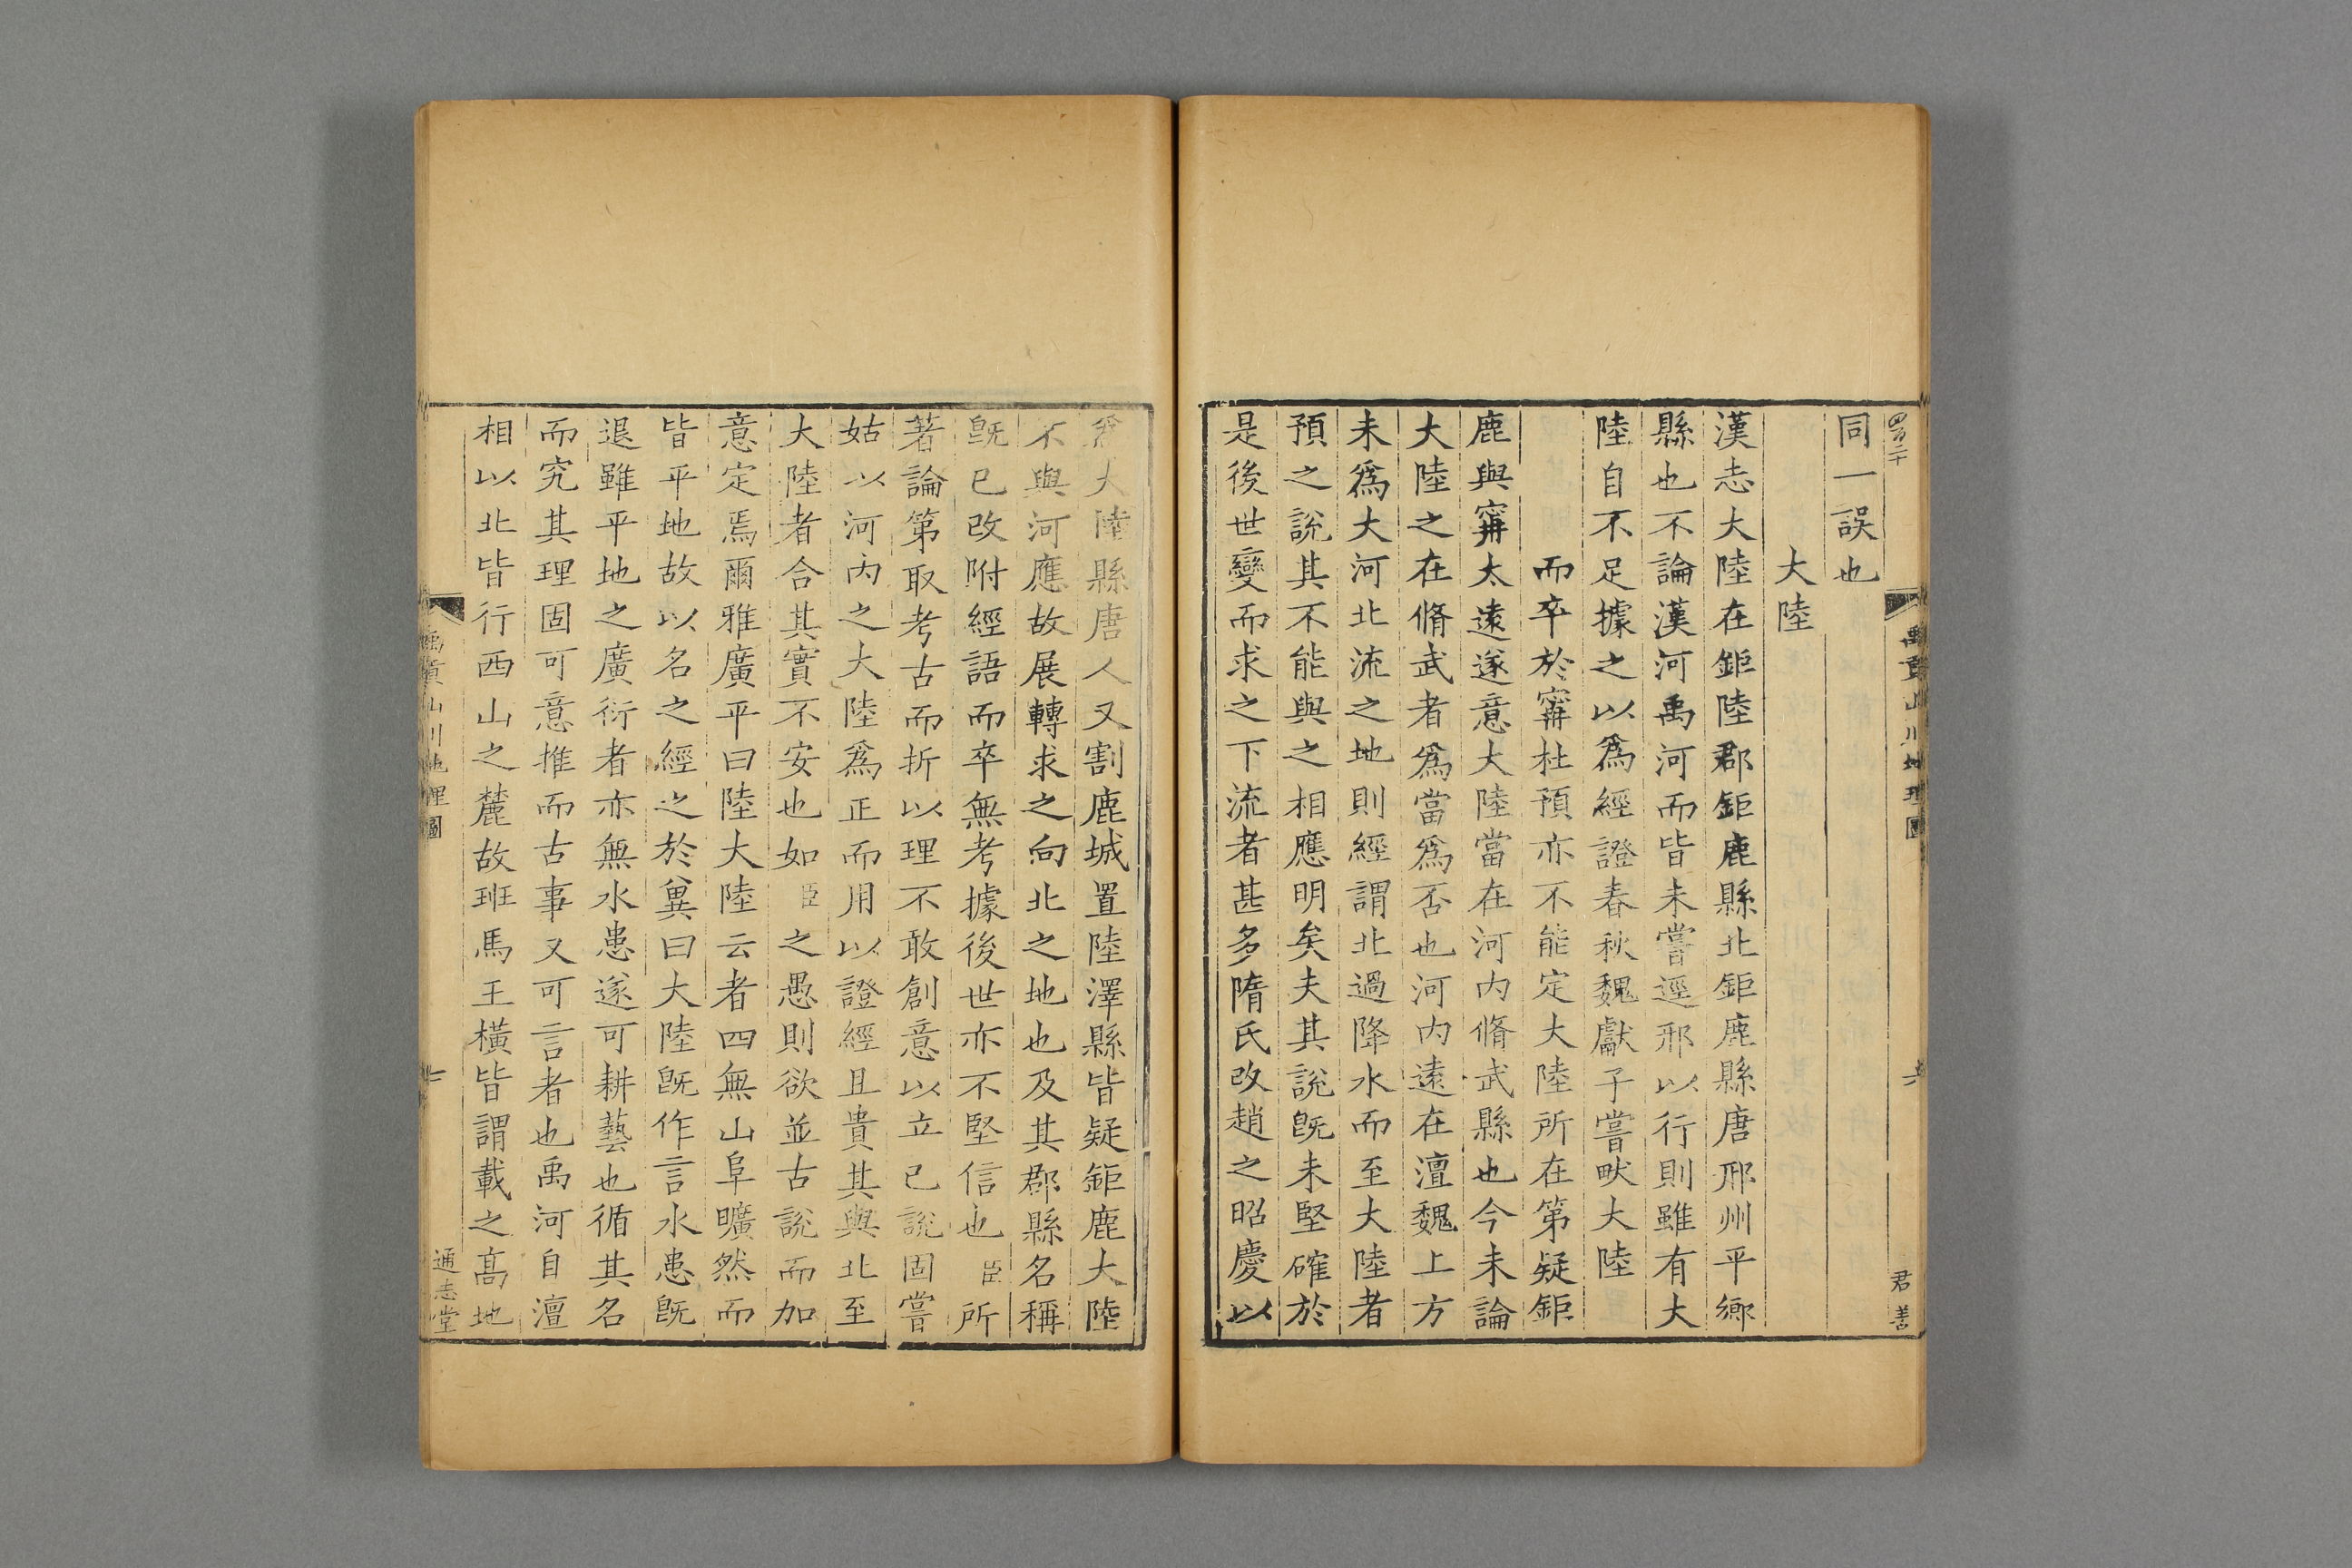 同一誤也
大陸
漢志大陸在鉅陸郡鉅鹿縣北鉅鹿縣唐邢州平鄉
縣也不論漢河禹河而皆未嘗逕邢以行則雖有大
陸自不足據之以爲經證春秋魏獻子嘗畋大陸
而卒於甯杜預亦不能定大陸所在第疑鉅
鹿與甯太遠遂意大陸當在河內脩武縣也今未論
大陸之在脩武者爲當爲否也河內遠在澶魏上方
未爲大河北流之地則經謂北過降水而至大陸者
預之說其不能與之相應明矣夫其說旣未堅確於
是後世變而求之下流者甚多隋氏改趙之昭慶以
爲大陸縣唐人又割鹿城置陸澤縣皆疑鉅鹿大陸
不與河應故展轉求之向北之地也及其郡縣名稱
旣已改附經語而卒無考據後世亦不堅信也臣所
著論第取考古而折以理不敢創意以立已說固嘗
姑以河內之大陸爲正而用以證經且貴其與北至
大陸者合其實不安也如臣之愚則欲並古說而加
意定焉爾雅廣平曰陸大陸云者四無山阜曠然而
皆平地故以名之經之於兾曰大陸旣作言水患旣
退雖平地之廣衍者亦無水患遂可耕藝也循其名
而究其理固可意推而古事又可言者也禹河自澶
相以北皆行西山之麓故班馬王橫皆謂載之高地
禹貢山川地理圖
七
通志堂
四百二十
禹貢山川地理圖
六
君善